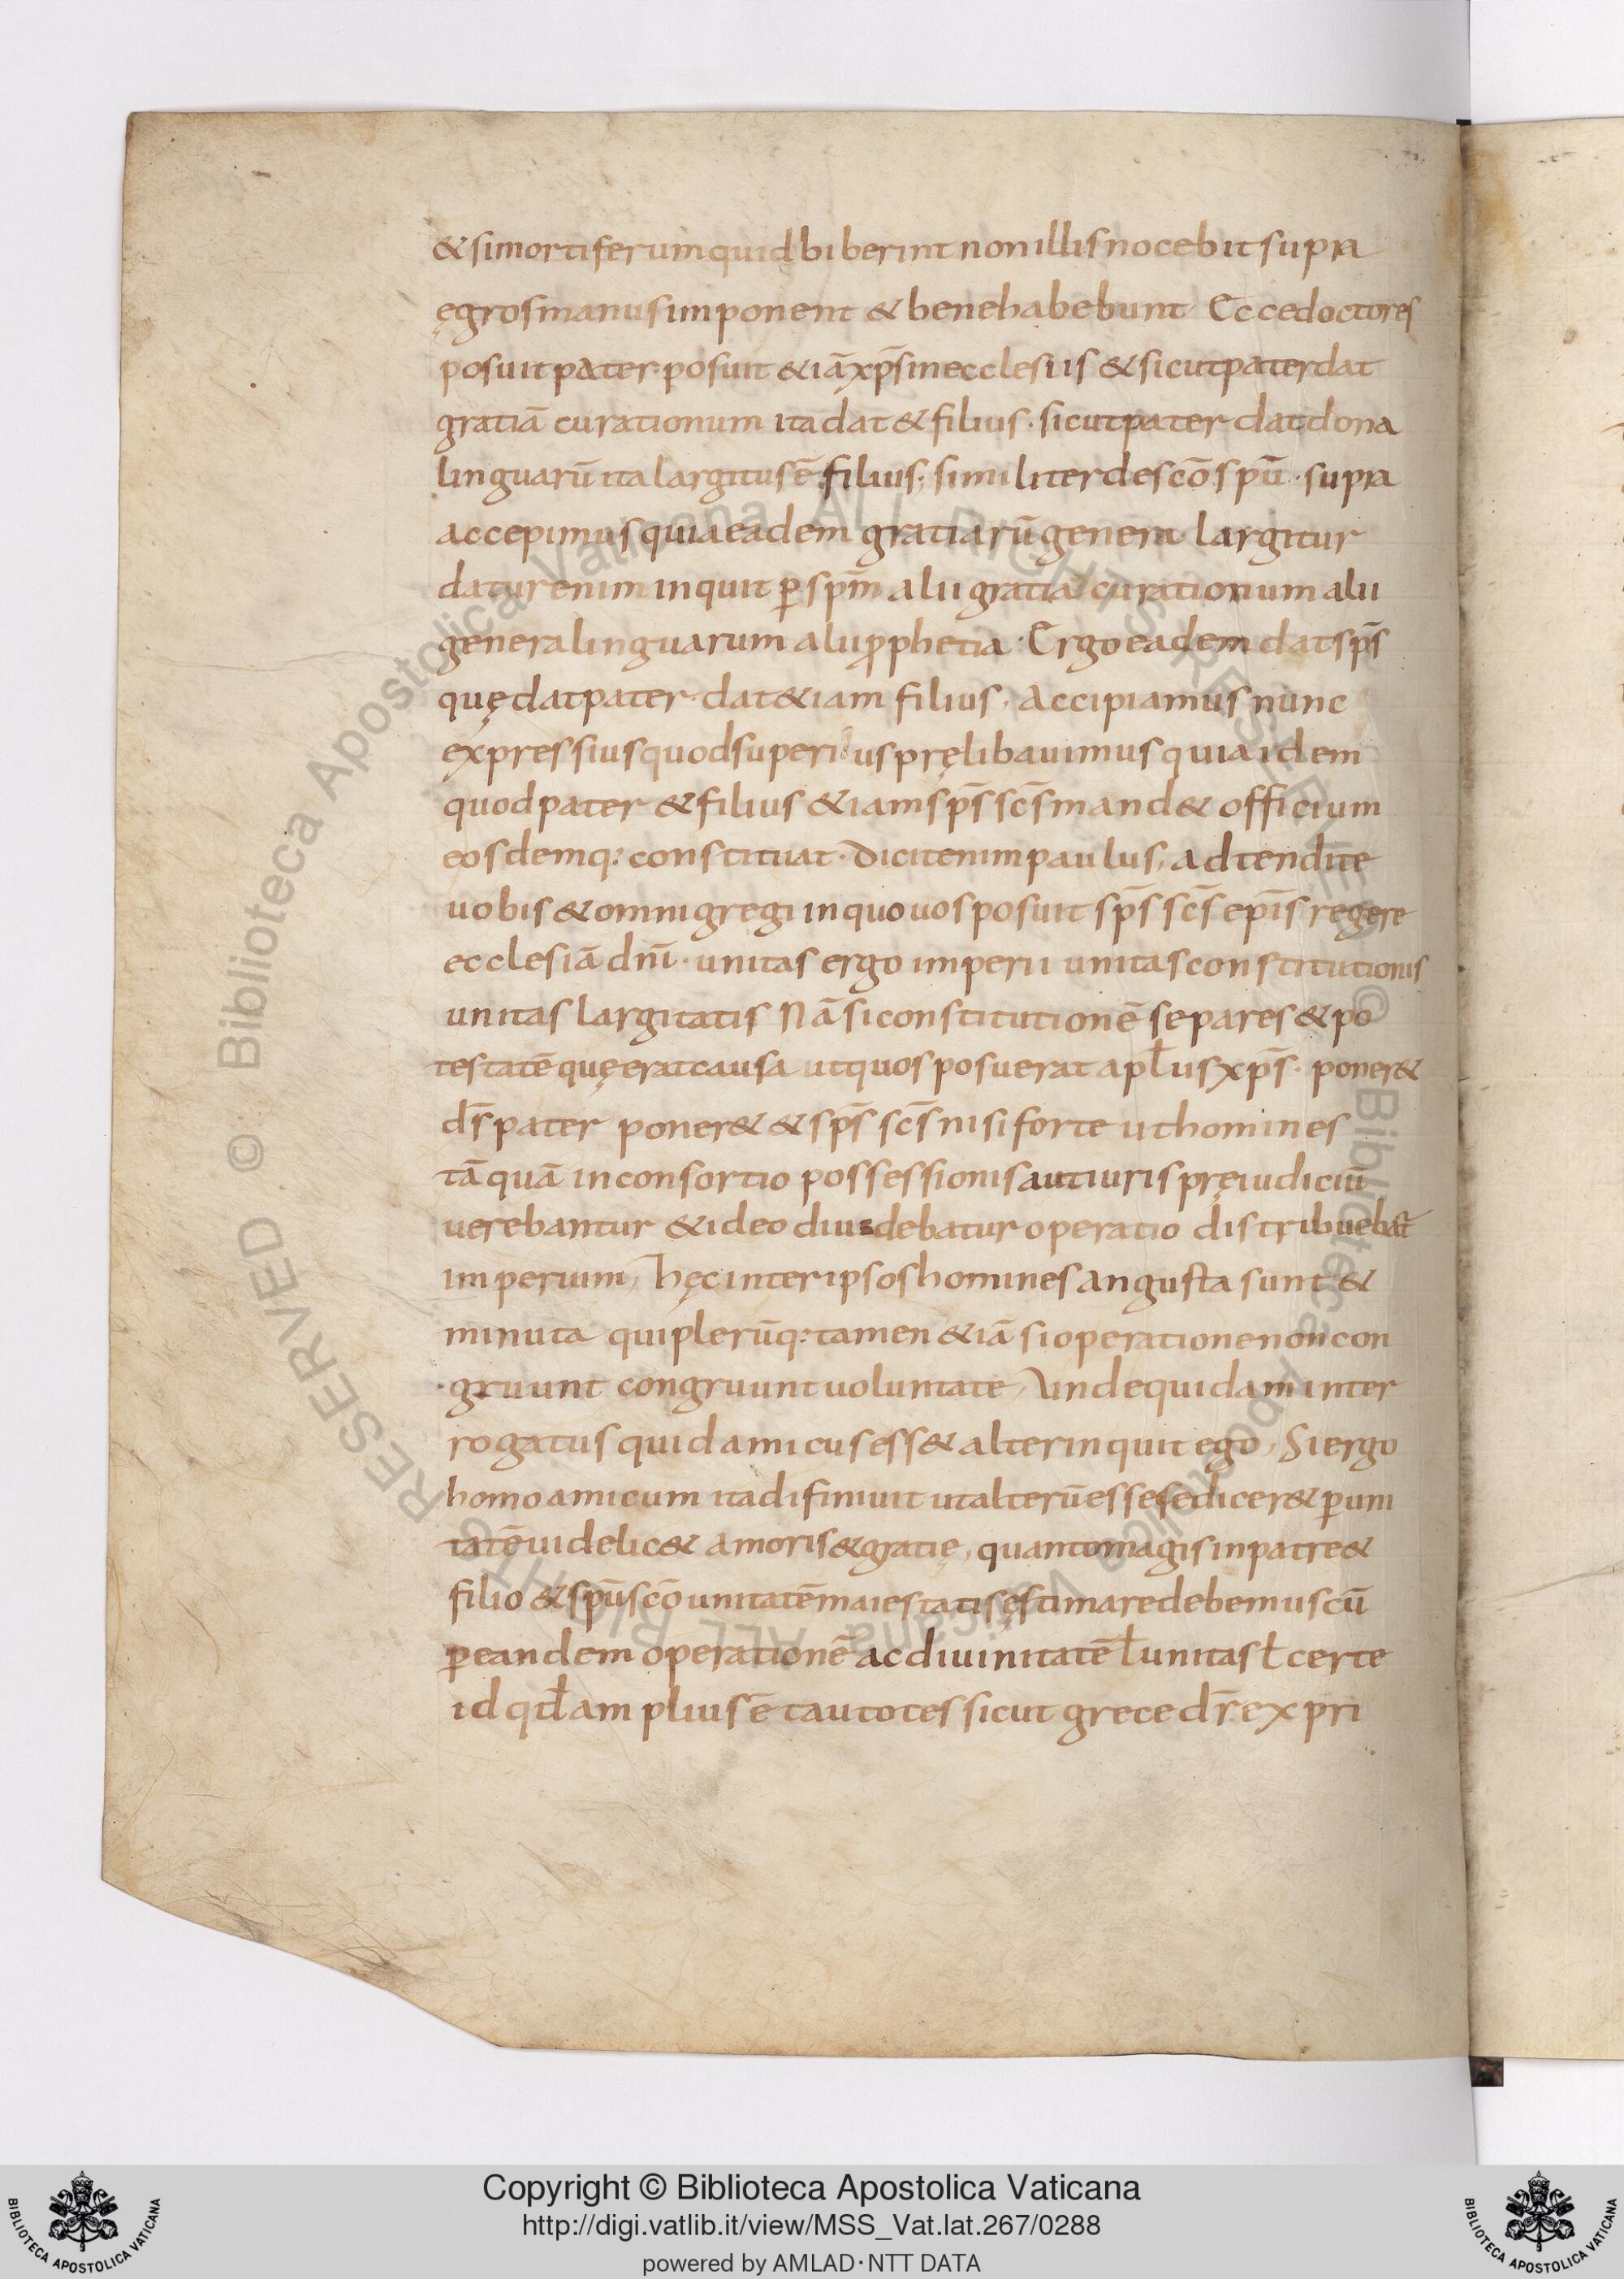 &simortiferumquidbiberintnonillisnocebitsupra
ęgrosmanusimponent & benehabebunt Eccedoctores
posuitpater·posuit &iāxp̄sinecclesiis &sicutpaterdat
gratiā curationum itadat&filius·sicutpater datdona
linguarū italargitusē filius; similiterdesc̄ospū·supra
accepimusquiaeadem gratiarūgenera largitur
daturenim inquit ꝑsp̄m alii gratia curationum alii
generalinguarum aliiꝓphetia·Ergoeadem datsp̄s
quędatpater·dat&iam filius, Accipiamus nunc
expressiusquodsuperi uspręlibauimusquiaidem
quodpater &filius &iamsp̄s sc̄smand& officium
eosdemq: constituat·dicitenimpaulus, adtendite
uobis &omnigregi inquouosposuit sp̄s sc̄s epīs regere
ecclesiā dnī·unitas ergo imperii unitasconstitutionis
unitas largitatis Nā siconstitutionē separes &po
testatē quęeratcausa utquosposuerat apłusxp̄s·poner&
ds̄pater poner& &sp̄s sc̄s nisiforte uthomines
tāquā inconsortio possessionisautiurispręiudiciū
uerebantur &ideo diuidebatur operatio distribuebat̄
imperium, hęcinteripsoshomines angusta sunt &
minuta quiplerūq: tamen &iā sioperationenoncon
gruunt congruuntuoluntate, Undequidam inter
rogatus quidamicusess& alterinquit ego, Siergo
homoamicum itadifiniuit utalterūessesedicer& ꝑuni
tatēuidelic& amoris&gratię, quantomagisinpatre&
filio &spūsc̄o unitatēmaiestatisęstimaredebemuscū
ꝑeandem operationē acdiuinitatē ł unitas ł certe
id qđ am pliusē tautotes sicut grece dr̄ expri
Copyright © Biblioteca Apostolica Vaticana
http://digi.vatlib.it/view/MSS_Vat.lat.267/0288
powered by AMLAD·NTT DATA
BIBLIOTECA APOSTOLICA VATICANA
BIBLIOTECA APOSTOLICA VATICANA
© Biblioteca Apostolica Vaticana ALL RIGHTS RESERVED © Biblioteca Apostolica Vaticana ALL RIGHTS RESERVED